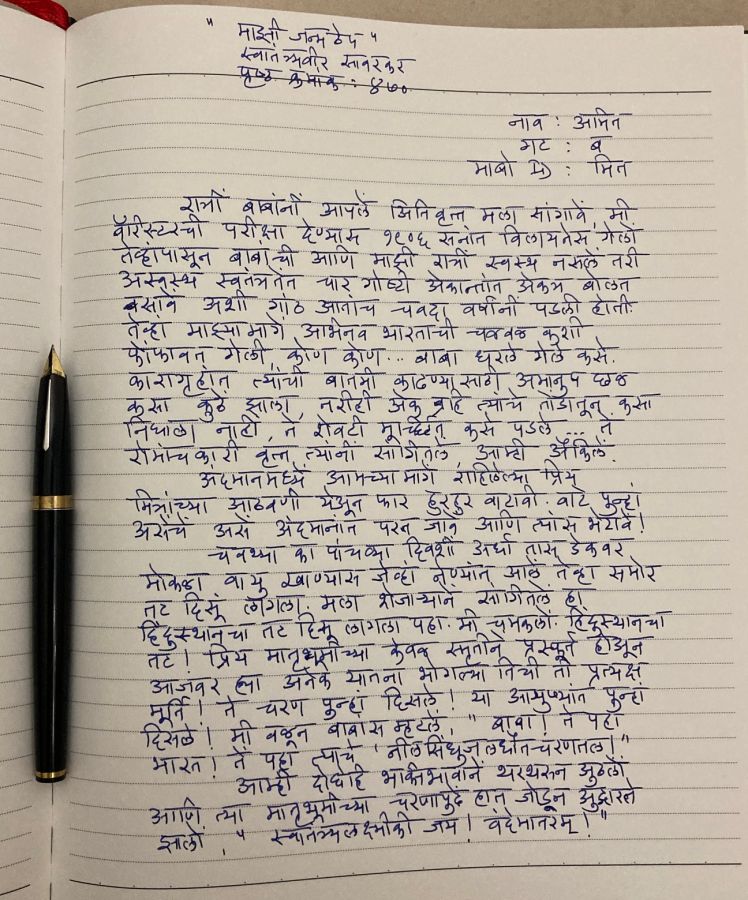 " माझी जन्मठेप "
स्वातंत्र्यवीर सावरकर
पृष्ठ क्रमांक : ४७०
नाव : अमित
गट : ब
माबो ID : मित
रात्रीं बाबांनीं आपलें अितिवृत्त मला सांगावें, मी
बॅरिस्टरची परीक्षा देण्यास १९०६ सनांत विलायतेस गेलो
तेव्हांपासून बाबांची आणि माझी रात्रीं स्वस्थ नसलें तरी
अस्वस्थ स्वतंत्रतेंत चार गोष्टी अेकान्तांत अेकत्र बोलत
बसावें अशी गांठ आतांच चवदा वर्षांनीं पडली होती.
तेव्हा माझ्यामागें अभिनव भारताची चळवळ कशी
फोंफावत गेली, कोण कोण... बाबा धरले गेले कसे.
कारागृहांत त्यांची बातमी काढण्यासाठी अमानुष छळ
कसा कुठें झाला, तरीही अेक ब्रहि त्यांचे तोंडातून कसा
निघाला नाही, ते शेवटी मूर्च्छित कसे पडले... तें
रोमांचकारी वृत्त त्यांनीं सांगितलें, आम्ही अैकिलें.
अंदमानमध्यें आमच्यामागें राहिलेल्या प्रिय
मित्रांच्या आठवणी येअून फार हुरहुर वाटावी. वाटे पुन्हां
असेंच असें अंदमानांत परत जावें आणि त्यांस भेटावें!
चवथ्या का पांचव्या दिवशीं अर्धा तास डेकवर
मोकळा वायु खाण्यास जेव्हां नेण्यांत आलें तेव्हा समोर
तट दिसूं लागला. मला शेजाऱ्याने सांगितलें हा
हिंदुस्थानचा तट दिसू लागला पहा. मी चमकलों. हिंदुस्थानचा
तट! प्रिय मातृभूमीच्या केवळ स्मृतीनें प्रस्फूर्त होअून
आजवर ह्या अनेक यातना भोगल्या तिची ती प्रत्यक्ष
मूर्ति! ते चरण पुन्हां दिसले! या आयुष्यांत पुन्हां
दिसले! मी वळून बाबास म्हटलें, " बाबा! ते पहा
भारत! तें पहा त्याचें 'नीलसिंधुजलधौतचरणतल!'
आम्ही दोघेहि भक्तिभावानें थरथरून अुठलों
आणि त्या मातृभूमीच्या चरणापुढें हात जोडून अुद्गारते
झालों, " स्वातंत्र्यलक्ष्मीकी जय! वंदेमातरम्! "